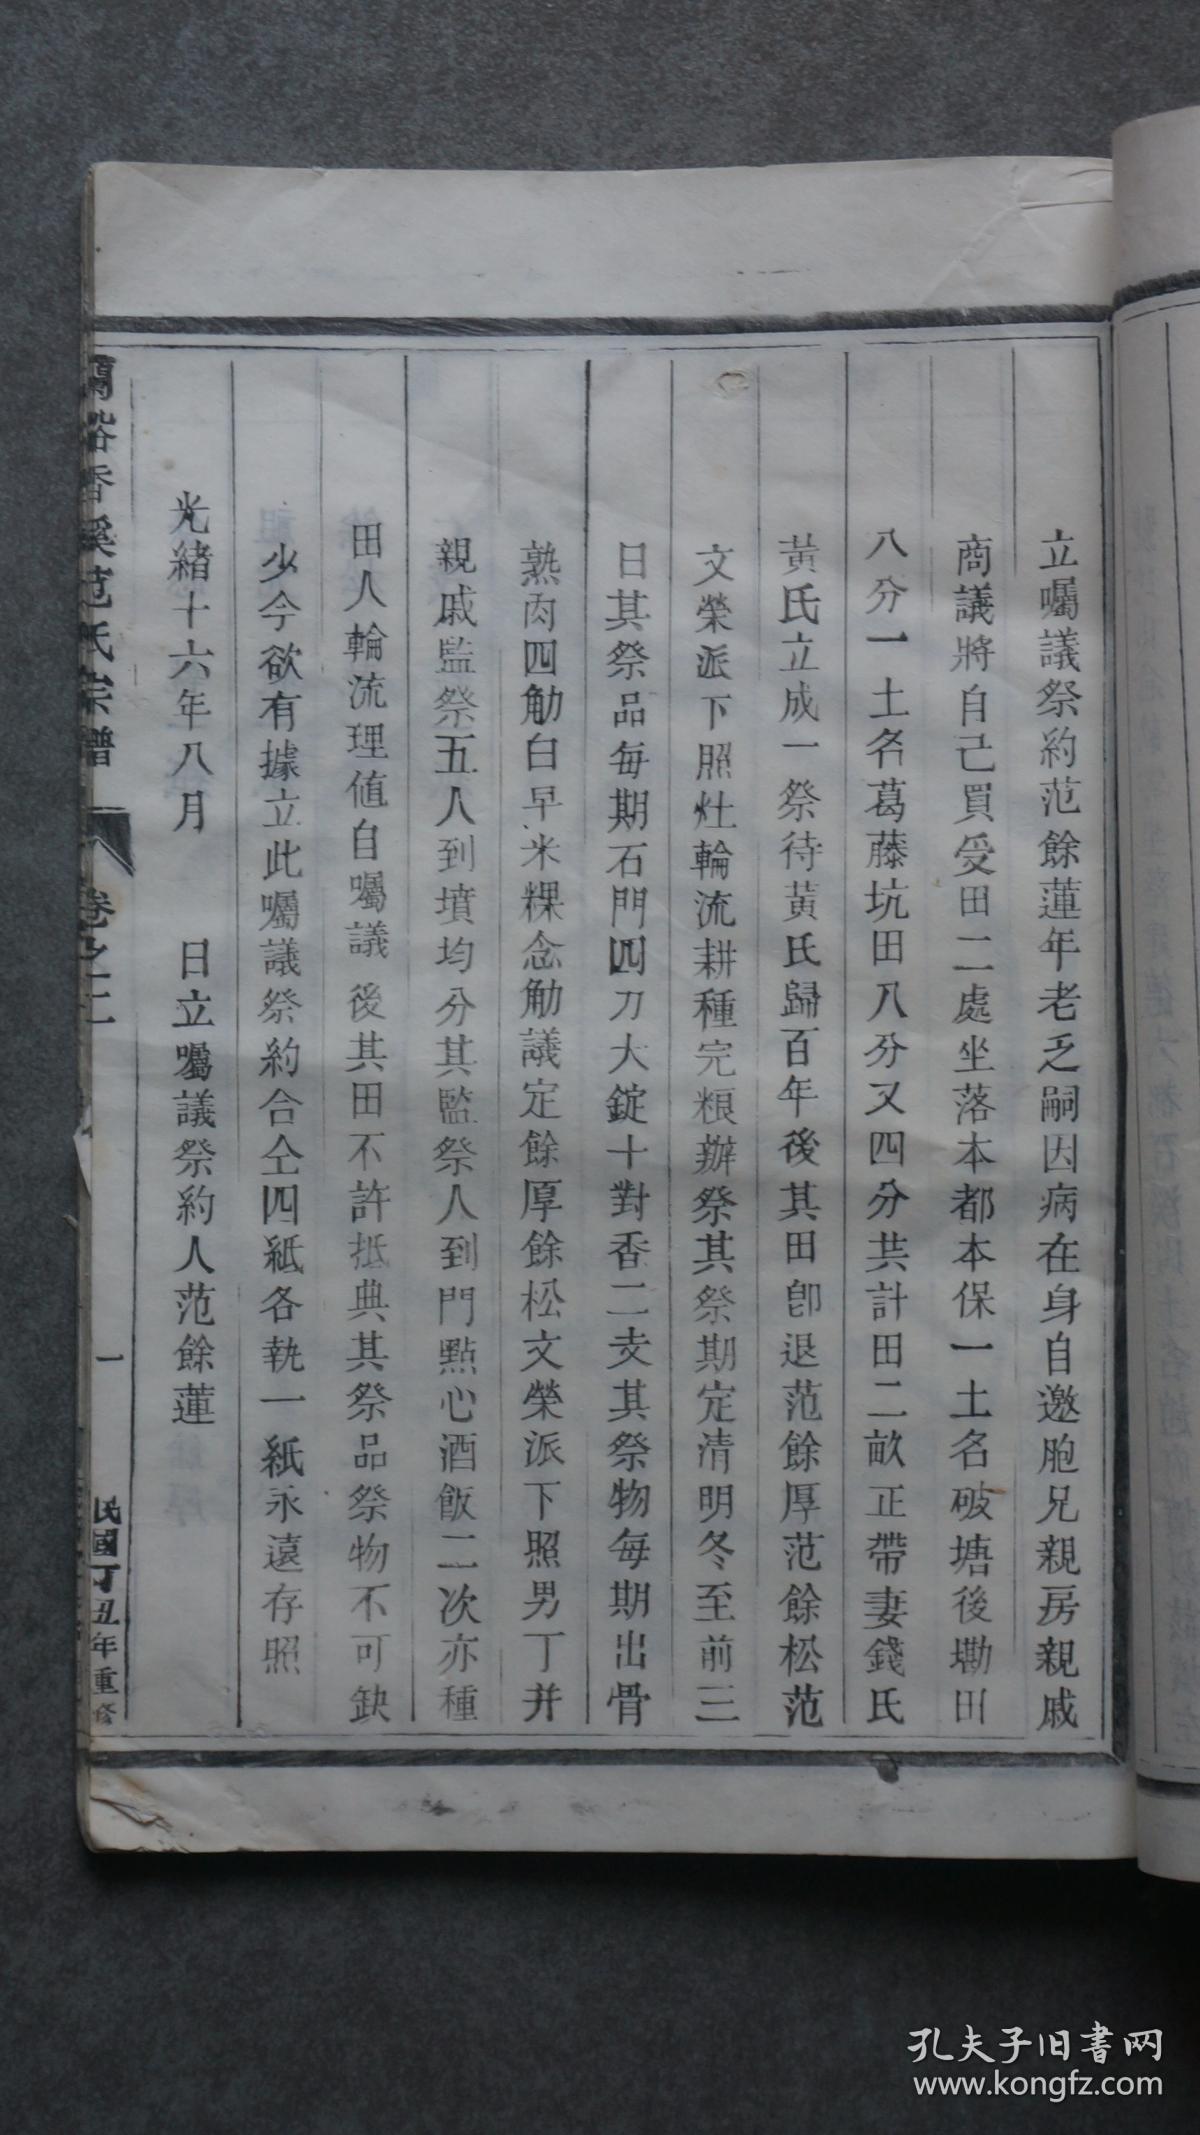 立囑議祭約范餘蓮年老乏嗣因病在身自邀胞兄親房親戚
商議將自己買受田二處坐落本都本保一土名破塘後塝田
八分一土名葛藤坑田八分又四分共計田二畝正帶妻錢氏
黃氏立成一祭待黃氏歸百年後其田卽退范餘厚范餘松范
文榮派下照灶輪流耕種完粮辦祭其祭期定清明冬至前三
日其祭品每期石門四刀大錠十對香二支其祭物每期出骨
熟肉四觔白早米粿念觔議定餘厚餘松文榮派下照男丁并
親戚監祭五人到墳均分其監祭人到門點心酒飯二次亦種
田人輪流理值自囑議後其田不許抵典其祭品祭物不可缺
少今欲有據立此囑議祭約合仝四紙各執一紙永遠存照
光緒十六年八月 日立囑議祭約人范餘蓮
蘭谿香溪范氏宗譜 卷之二 一 民國丁丑年重修
孔夫子旧书网
www.kongfz.com